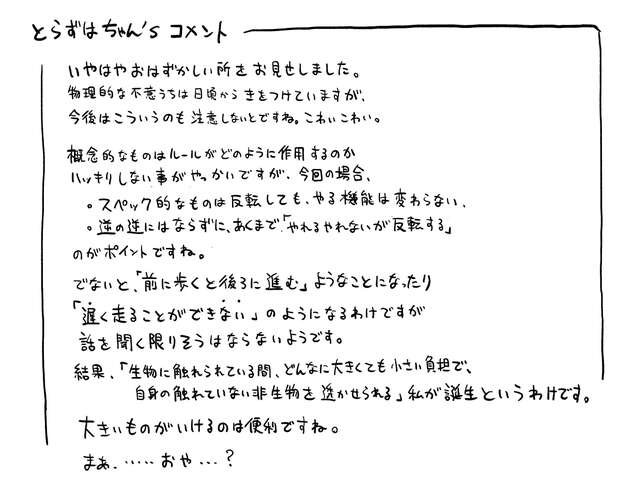 とらずはちゃん's コメント
いやはやおはずかしい所をお見せしました。
物理的な不意うちは日頃からきをつけていますが、
今後はこういうのも注意しないとですね。こわいこわい。
概念的なものはルールがどのように作用するのか
ハッキリしない事がやっかいですが、今回の場合、
。スペック的なものは反転しても、やる機能は変わらない、
。逆の逆にはならずに、あくまで「やれるやれないが反転する」
のがポイントですね。
でないと、「前に歩くと後ろに進む」ようなことになったり
「遅く走ることができない」のようになるわけですが
話を聞く限りそうはならないようです。
結果、「生物に触れられている間、どんなに大きくても小さい負担で、
自身の触れていない非生物を透かせられる」私が誕生というわけです。
大きいものがいけるのは便利ですね。
まぁ、‥‥‥おや…？